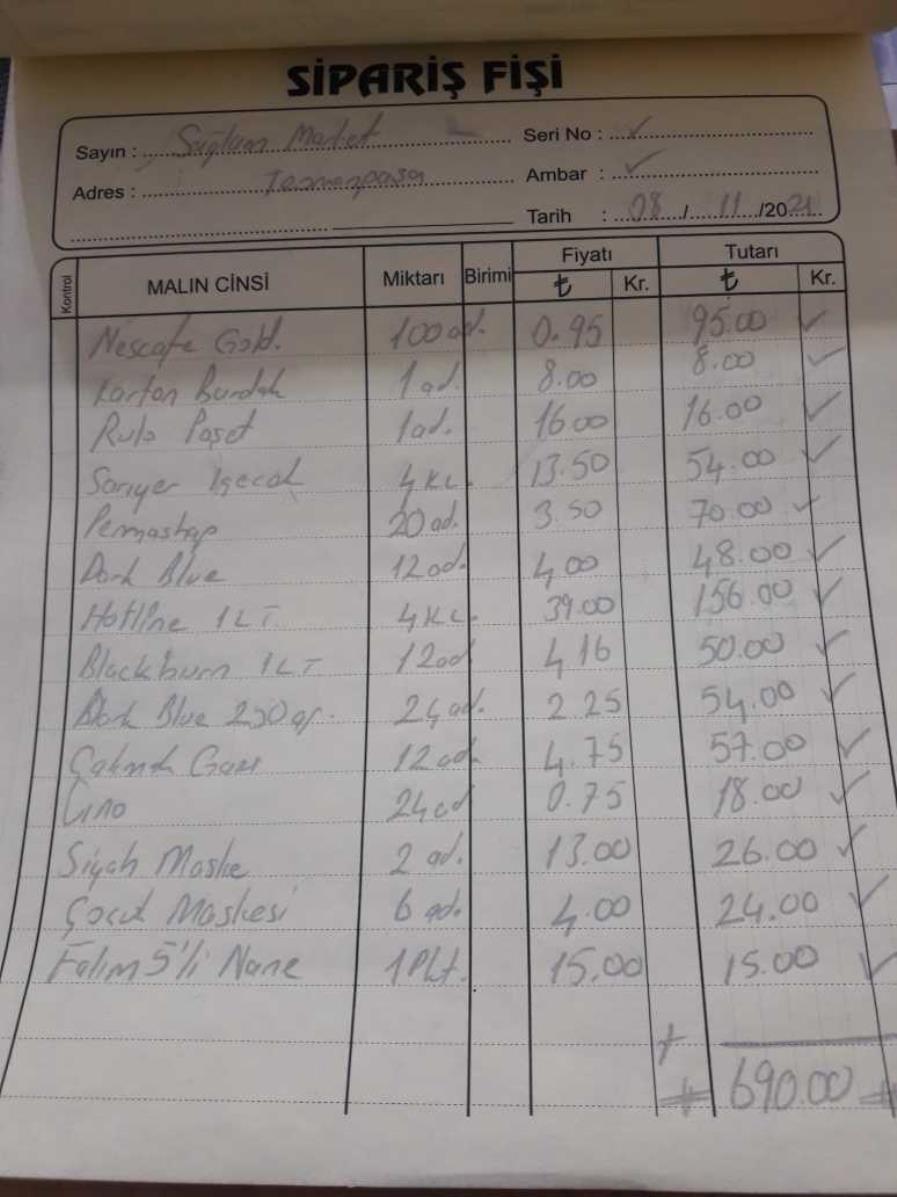 SİPARİŞ FİŞİ
Sayın : Sağlam Market Seri No : ✓
Adres : Ambar : ✓
Tarih : 08 / 11 /2021
Kontrol MALIN CİNSİ Miktarı Birimi Fiyatı ₺ Kr. Tutarı ₺ Kr.
Nescafe Gold. 100 ad. 0.95 95.00 ✓
Karton Bardak 1 ad. 8.00 8.00 ✓
Rulo Poşet 1 ad. 16.00 16.00 ✓
Sarıyer İçecek 4 KL. 13.50 54.00 ✓
20 ad. 3.50 70.00 ✓
Dark Blue 12 ad. 4,00 48.00 ✓
Hotline 1 LT. 4 KL. 39.00 156.00 ✓
Blackburn 1 LT 12 ad 4,16 50.00 ✓
Dark Blue 250 gr. 24 ad. 2.25 54,00 ✓
Çakmak Gazı 12 ad. 4.75 57.00 ✓
24 ad 0.75 18.00 ✓
Siyah Maske 2 ad. 13.00 26.00 ✓
Çocuk Maskesi 6 ad. 4.00 24.00 ✓
Falım 5'li Nane 1 Pkt. 15.00 15.00 ✓
+
# 690.00 #